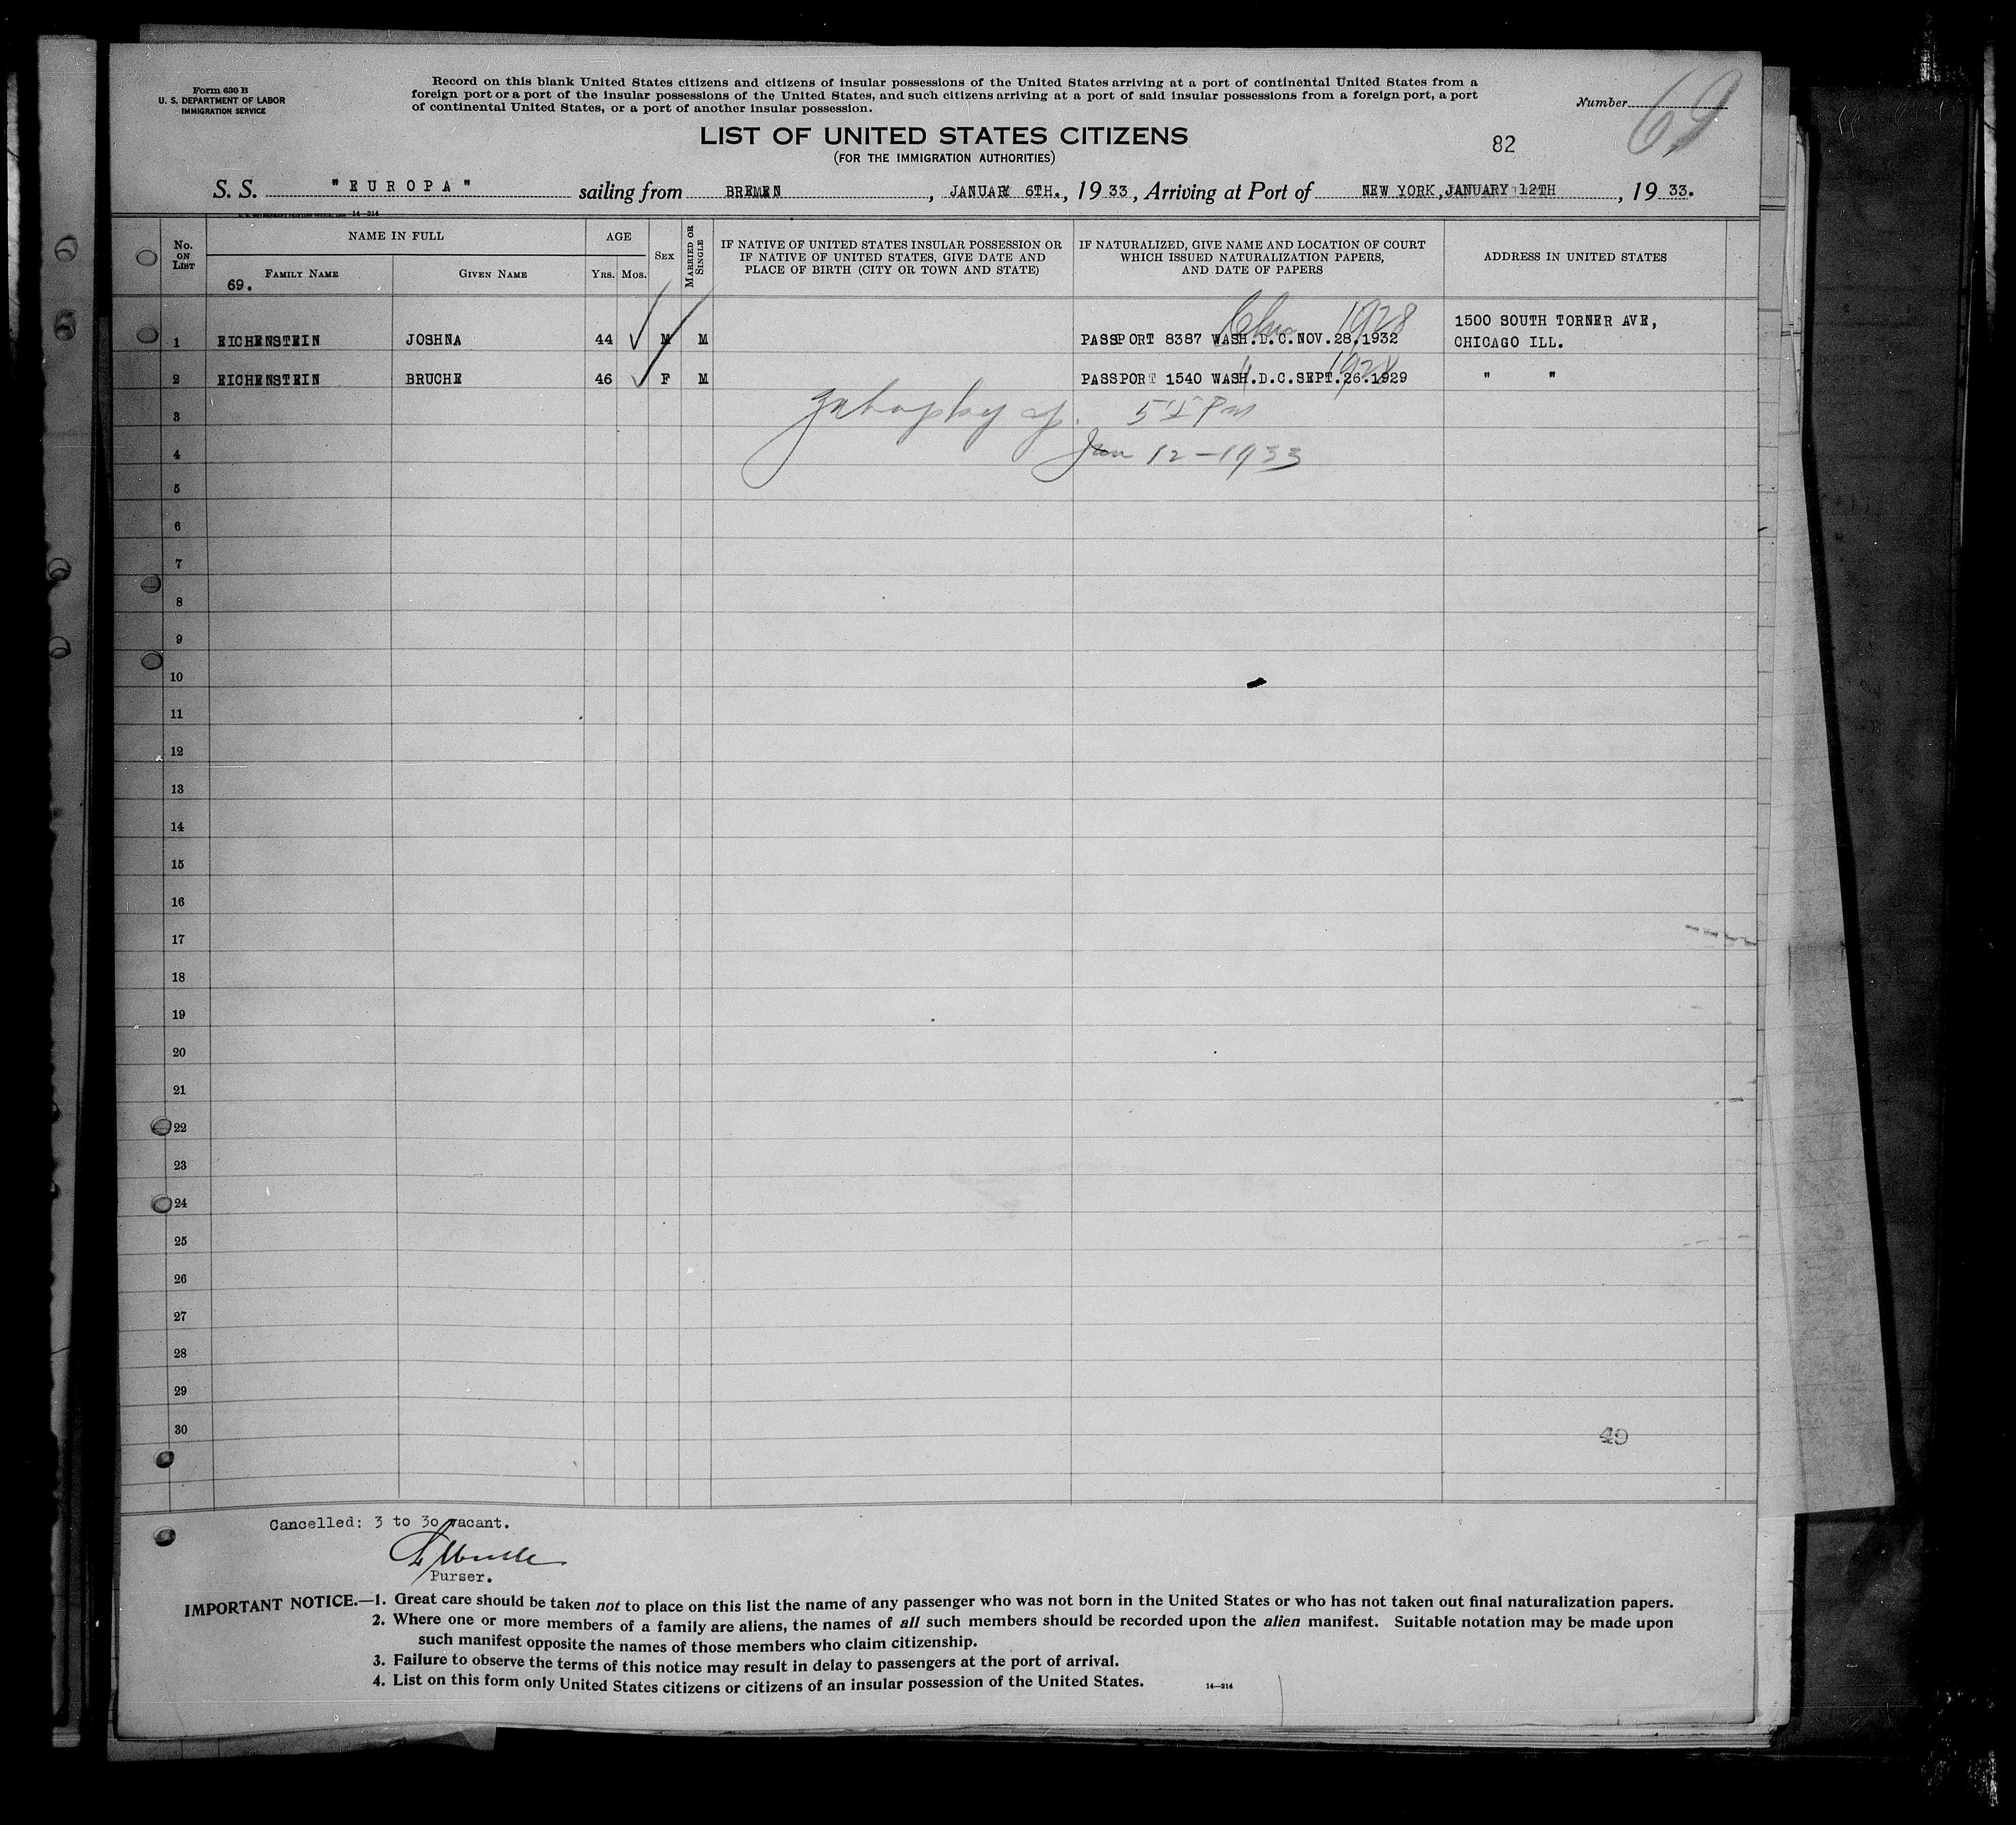 Form 630 B
U. S. DEPARTMENT OF LABOR
IMMIGRATION SERVICE
Record on this blank United States citizens and citizens of insular possessions of the United States arriving at a port of continental United States from a
foreign port or a port of the insular possessions of the United States, and such citizens arriving at a port of said insular possessions from a foreign port, a port
of continental United States, or a port of another insular possession.
Number 69
LIST OF UNITED STATES CITIZENS
(FOR THE IMMIGRATION AUTHORITIES)
82
S. S. "EUROPA" sailing from BREMEN, JANUARY 6TH., 1933, Arriving at Port of NEW YORK, JANUARY 12TH, 1933.
14—214
No. ON LIST
NAME IN FULL
69. FAMILY NAME
GIVEN NAME
AGE
YRS. MOS.
SEX
MARRIED OR SINGLE
IF NATIVE OF UNITED STATES INSULAR POSSESSION OR
IF NATIVE OF UNITED STATES, GIVE DATE AND
PLACE OF BIRTH (CITY OR TOWN AND STATE)
IF NATURALIZED, GIVE NAME AND LOCATION OF COURT
WHICH ISSUED NATURALIZATION PAPERS,
AND DATE OF PAPERS
ADDRESS IN UNITED STATES
1928
1500 SOUTH TORNER AVE,
1 EICHENSTEIN JOSHNA 44 M M PASSPORT 8387 WASH.D.C.NOV.28.1932 CHICAGO ILL.
2 EICHENSTEIN BRUCHE 46 F M PASSPORT 1540 WASH.D.C.SEPT.26.1929 " "
1928
3 PM
4 Jan 12-1933
5
6
7
8
9
10
11
12
13
14
15
16
17
18
19
20
21
22
23
24
25
26
27
28
29
30
49
Cancelled: 3 to 30 vacant.
Purser.
IMPORTANT NOTICE.—1. Great care should be taken not to place on this list the name of any passenger who was not born in the United States or who has not taken out final naturalization papers.
2. Where one or more members of a family are aliens, the names of all such members should be recorded upon the alien manifest. Suitable notation may be made upon
such manifest opposite the names of those members who claim citizenship.
3. Failure to observe the terms of this notice may result in delay to passengers at the port of arrival.
4. List on this form only United States citizens or citizens of an insular possession of the United States.
14—214